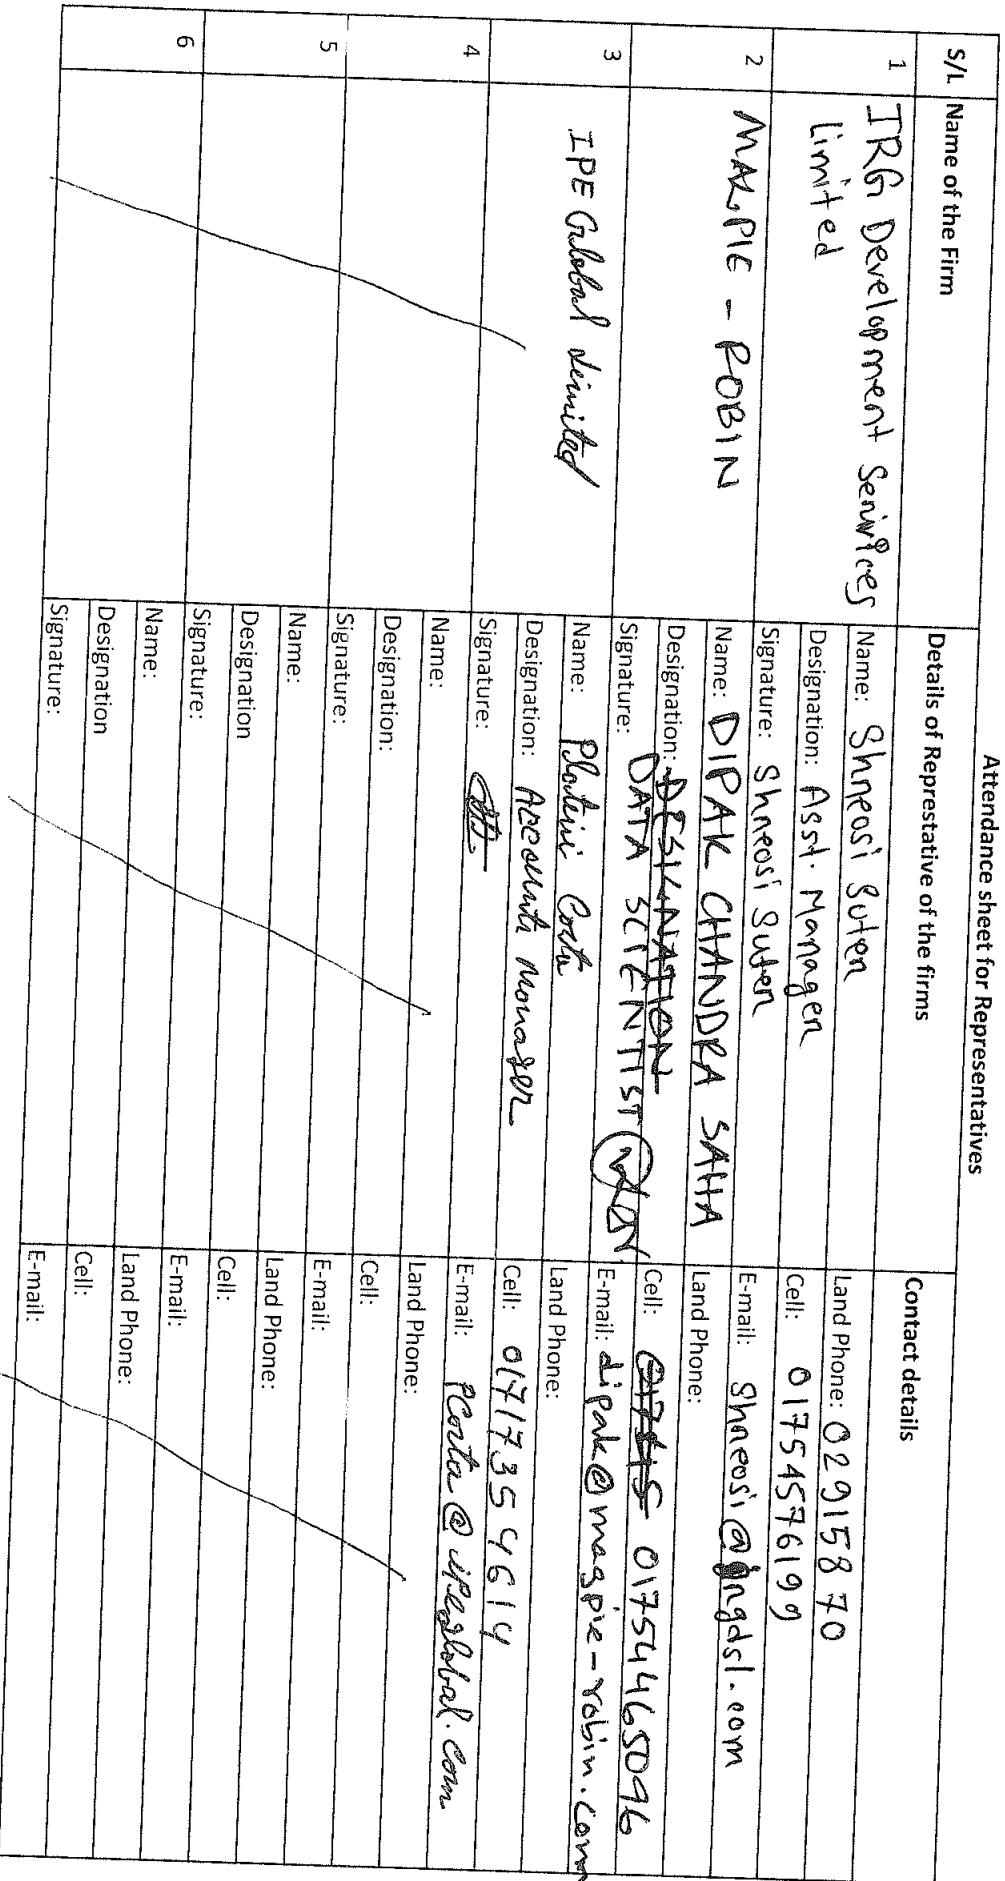 Attendance sheet for Representatives
S/L Name of the Firm Details of Represtative of the firms Contact details
1 IRG Development Services Limited
Name: Shneosi Suten
Designation: Asst. Managen
Signature: Shneosi Suten
Land Phone: 029158870
Cell: 01754576199
E-mail: Shneosi@ingdsl.com
2 MAGPIE - ROBIN
Name: DIPAK CHANDRA SAHA
Designation: DESIGNATION
DATA SCIENTIST
Signature:
Land Phone:
Cell: 01754465096
E-mail: dipak@magpie-robin.com
3 IPE Global Limited
Name: Platini Costa
Designation: Accounts Manager
Signature:
Land Phone:
Cell: 01717354614
E-mail: PCosta@ipeglobal.com
4
Name:
Designation:
Signature:
Land Phone:
Cell:
E-mail:
5
Name:
Designation
Signature:
Land Phone:
Cell:
E-mail:
6
Name:
Designation
Signature:
Land Phone:
Cell:
E-mail: